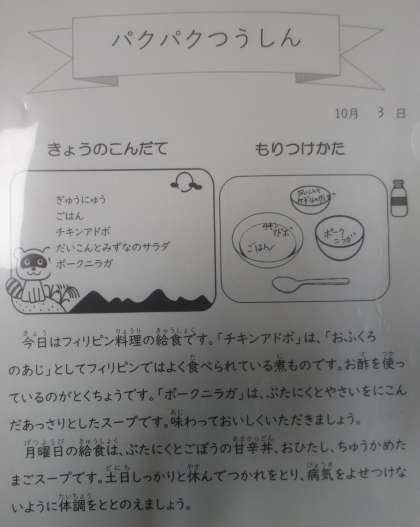 パクパクつうしん
10月 3 日
きょうのこんだて
もりつけかた
ぎゅうにゅう
ごはん
チキンアドボ
だいこんとみずなのサラダ
ポークニラガ
だいこんと
みずなのサラダ
チキン
アドボ
ごはん
ポーク
ニラガ
今日はフィリピン料理の給食です。「チキンアドボ」は、「おふくろ
のあじ」としてフィリピンではよく食べられている煮ものです。お酢を使っ
ているのがとくちょうです。「ポークニラガ」は、ぶたにくとやさいをにこん
だあっさりとしたスープです。味わっておいしくいただきましょう。
月曜日の給食は、ぶたにくとごぼうの甘辛丼、おひたし、ちゅうかめた
まごスープです。土日しっかりと休んでつかれをとり、病気をよせつけな
いように体調をととのえましょう。